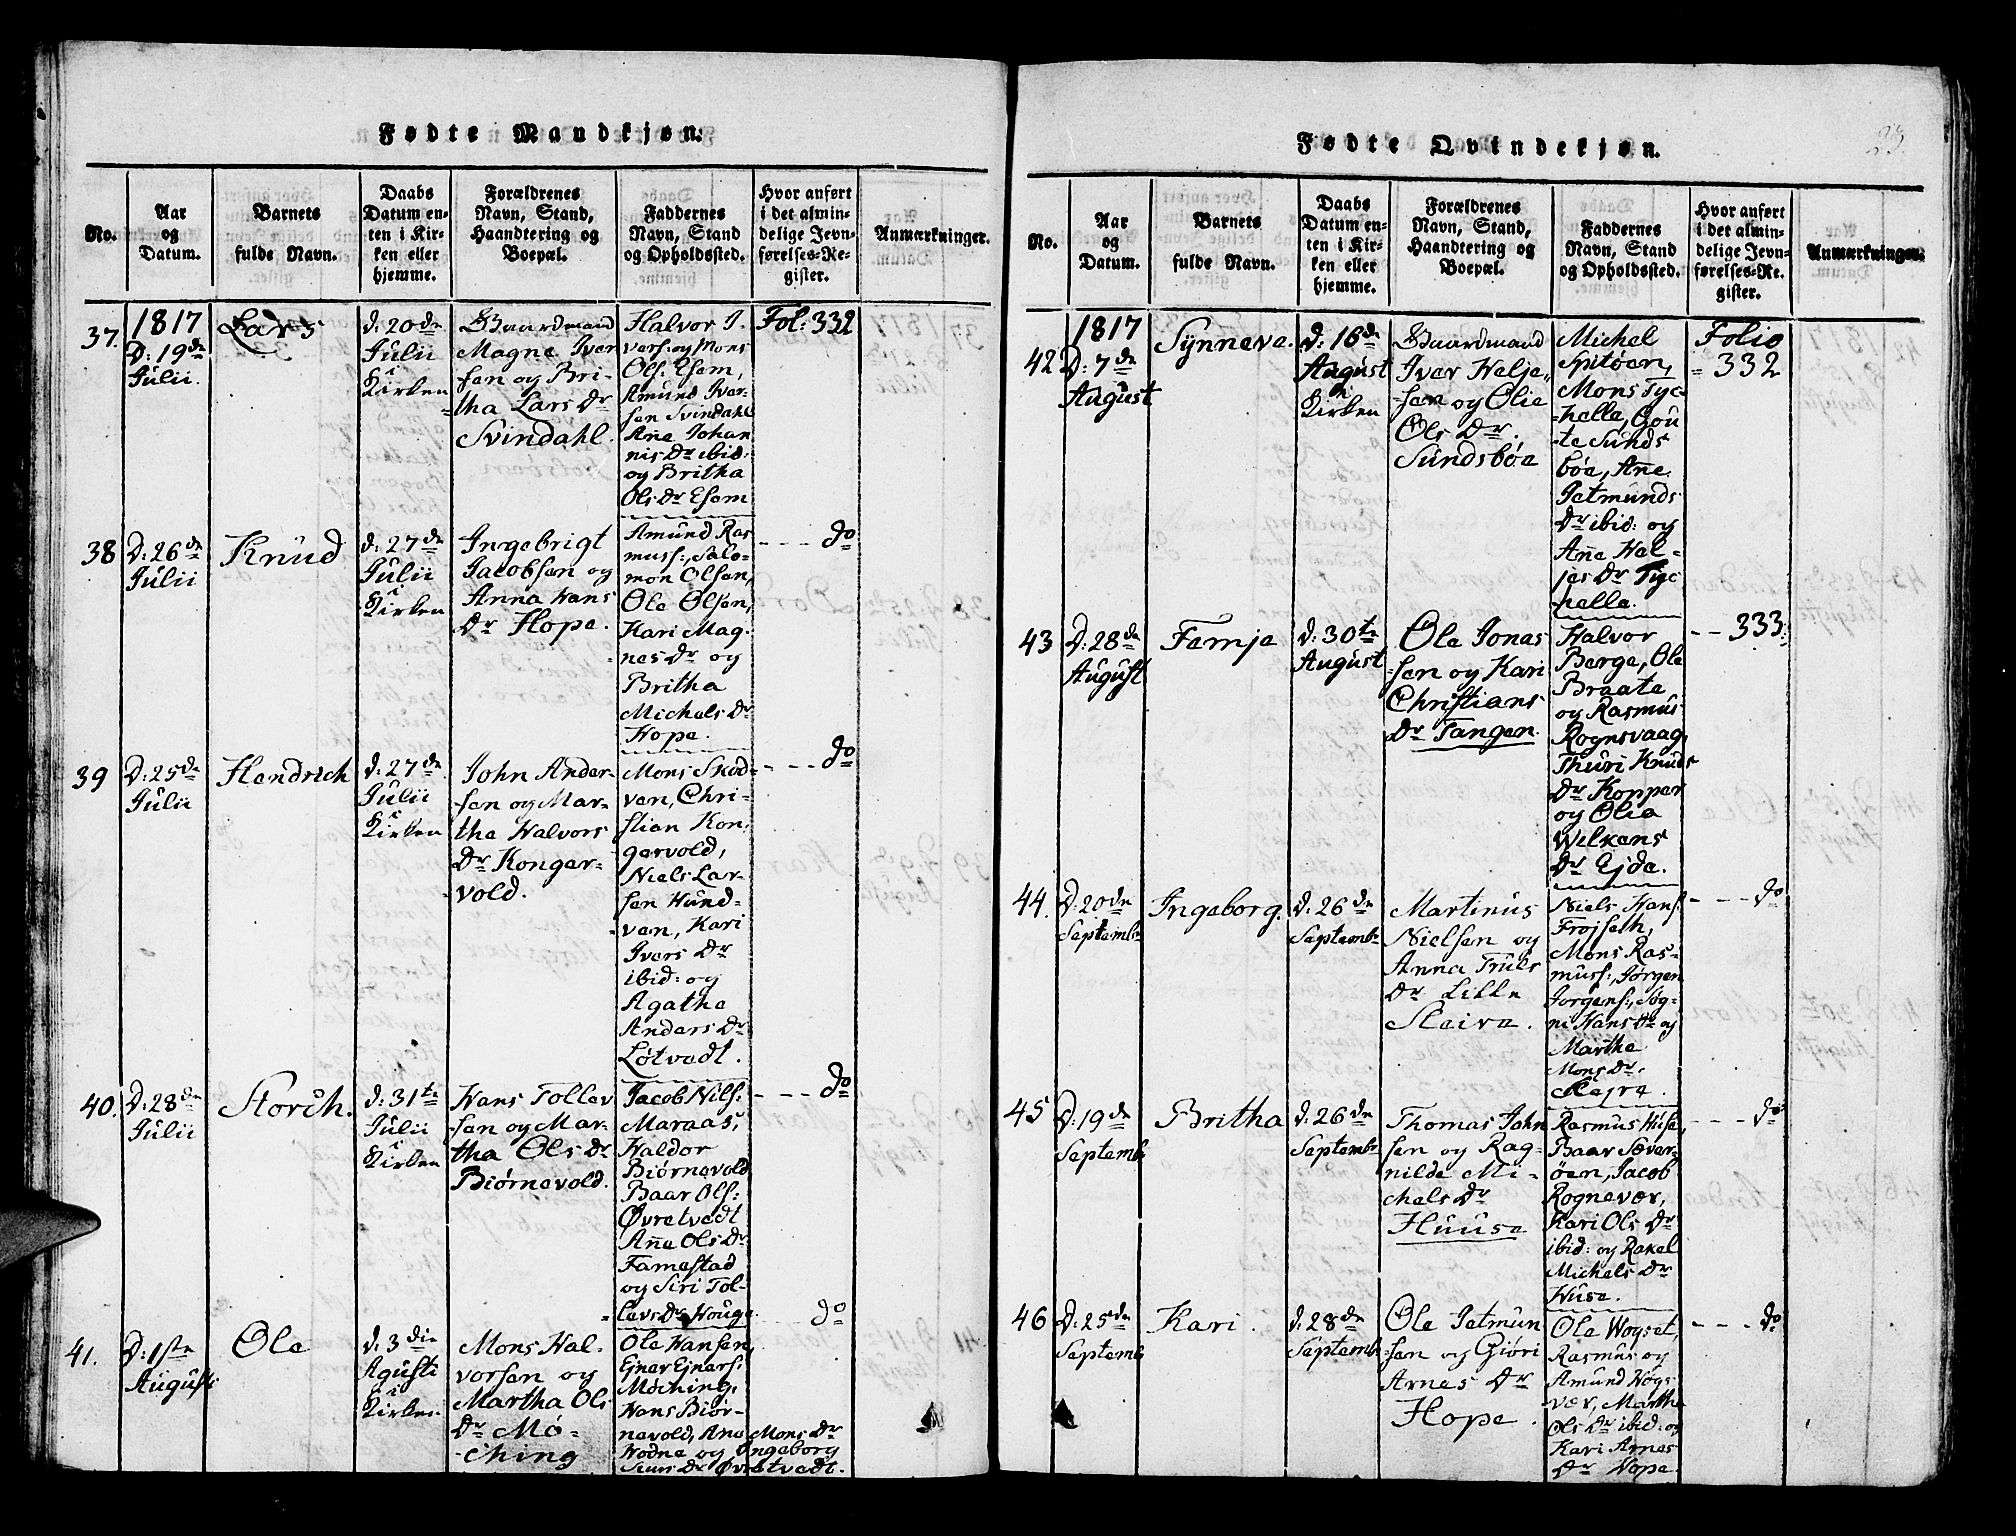 Fødte Mandkjøn.
No.
Aar
og
Datum.
Barnets
fulde Navn.
Daabs
Datum en-
ten i Kir-
ken eller
hjemme.
Forældrenes
Navn, Stand,
Haandtering og
Boepæl.
Faddernes
Navn, Stand
og Opholdssted.
Hvor anført
i det almin-
delige Jevn-
førelses-Re-
gister.
Anmærkninger.
37.
1817
D: 19de
Julii.
Lars
d: 20de
Julii
i
Kirken
Gaardmand
Magne Iver
sen og Bri-
tha Lars Dr
Svindahl.
Halvor I-
vers: og Mons
Ols: Esem,
Amund Iver-
sen Svindahl
Ane Johan
nis Dr ibid:
og Britha
Ols Dr Esem
Fol: 332
38
D: 26de
Julii
Knud
d: 27de
Julii
i
Kirken
Ingebrigt
Jacobsen og
Anna Hans
Dr Hope.
Amund Ras
muss:, Salo-
mon Olsen,
Ole Olsen,
Kari Mag-
nes Dr og
Britha
Michels Dr
Hope.
- - - do
39
D: 25de
Julii
Hendrich
d: 27de
Julii
i
Kirken
John Ander-
sen og Mar-
tha Halvors
Dr Konger-
vold.
Mons Skod-
ven, Chri-
stian Kon-
gervold,
Niels Lar-
sen Hund-
ven, Kari
Ivers Dr
ibid: og
Agatha
Anders Dr
Løtvedt.
- - - do
40.
D: 28de
Julii
Storch.
d: 31te
Julii
i
Kirken
Hans Tollev
sen og Mar-
tha Ols Dr
Biørnevold.
Jacob Nils:
Maraas,
Haldor
Biørnevold
Baar Ols:
Øvretvedt
Ane Ols Dr
Famestad
og Siri Tol-
levs Dr Houge
- - - do
41.
D: 1ste
Augusti
Ole
d: 3die
Agusti
i
Kirken
Mons Hal-
vorsen og
Martha Ols
Dr Mø-
ching
Ole Hansen,
Ejner Ejners:
Møching,
Hans Biør-
nevold, Ane Mons Dr
Hodne og Ingeborg
Dr Øvretvedt.
do
Fødte Qvindekjøn.
23.
No.
Aar
og
Datum.
Barnets
fulde Navn.
Daabs
Datum en-
ten i Kir-
ken eller
hjemme.
Forældrenes
Navn, Stand,
Haandtering og
Boepæl.
Faddernes
Navn, Stand
og Opholdssted.
Hvor anført
i det almin-
delige Jevn-
førelses-Re-
gister.
Anmærkninger.
42
1817
D: 7de
August
Synneva.
d: 16de
August
i
Kirken
Gaardmand
Iver Helje-
sen og Olie
Ols Dr.
Sundsbøe
Michel
Spitøen,
Mons Tyc-
helle, Gou-
te Sunds
bøe, Ane
Jetmunds
Dr ibid: og
Ane Hel-
jes Dr Tyc
helle.
Folio
= 332
43
D: 28de
August
Femja
d: 30te
August
Ole Jonas
sen og Kari
Christians
Dr Tangen.
Halvor
Berge, Ole
Braate
og Rasmus
Rognsvaag,
Thuri Knuds
Dr Kopper
og Olia
Wilkens
Dr Ejde.
- - 333:
44.
D: 20de
Septembr
Ingeborg.
d: 26de
Septembr
Martinus
Nielsen og
Anna Truls
Dr Lille
Sleire.
Niels Hans:
Frojseth,
Mons Ras-
muss:, Jørgen
Jorgens:, Søg-
ni Hans Dr og
Martha
Mons Dr.
Slejre.
- - - do
45
D: 19de
Septembr
Britha
d: 26de
Septembr
Thomas John
sen og Rag-
nilde Mi-
chels Dr
Huuse
Rasmus Huse,
Baar Sæver-
øen, Jacob
Rognevær,
Kari Ols Dr
ibid: og Rakel
Michels Dr
Huse.
- - - do
46
D: 25de
Septemb
Kari.
d: 28de
Septembr
Ole Jetmun
sen og Giøri
Arnes Dr
Hope.
Ole Wogset,
Rasmus og
Amund Wogs-
vær, Martha
Ols Dr ibid: og
Kari Arnes
Dr Hope.
- - - do